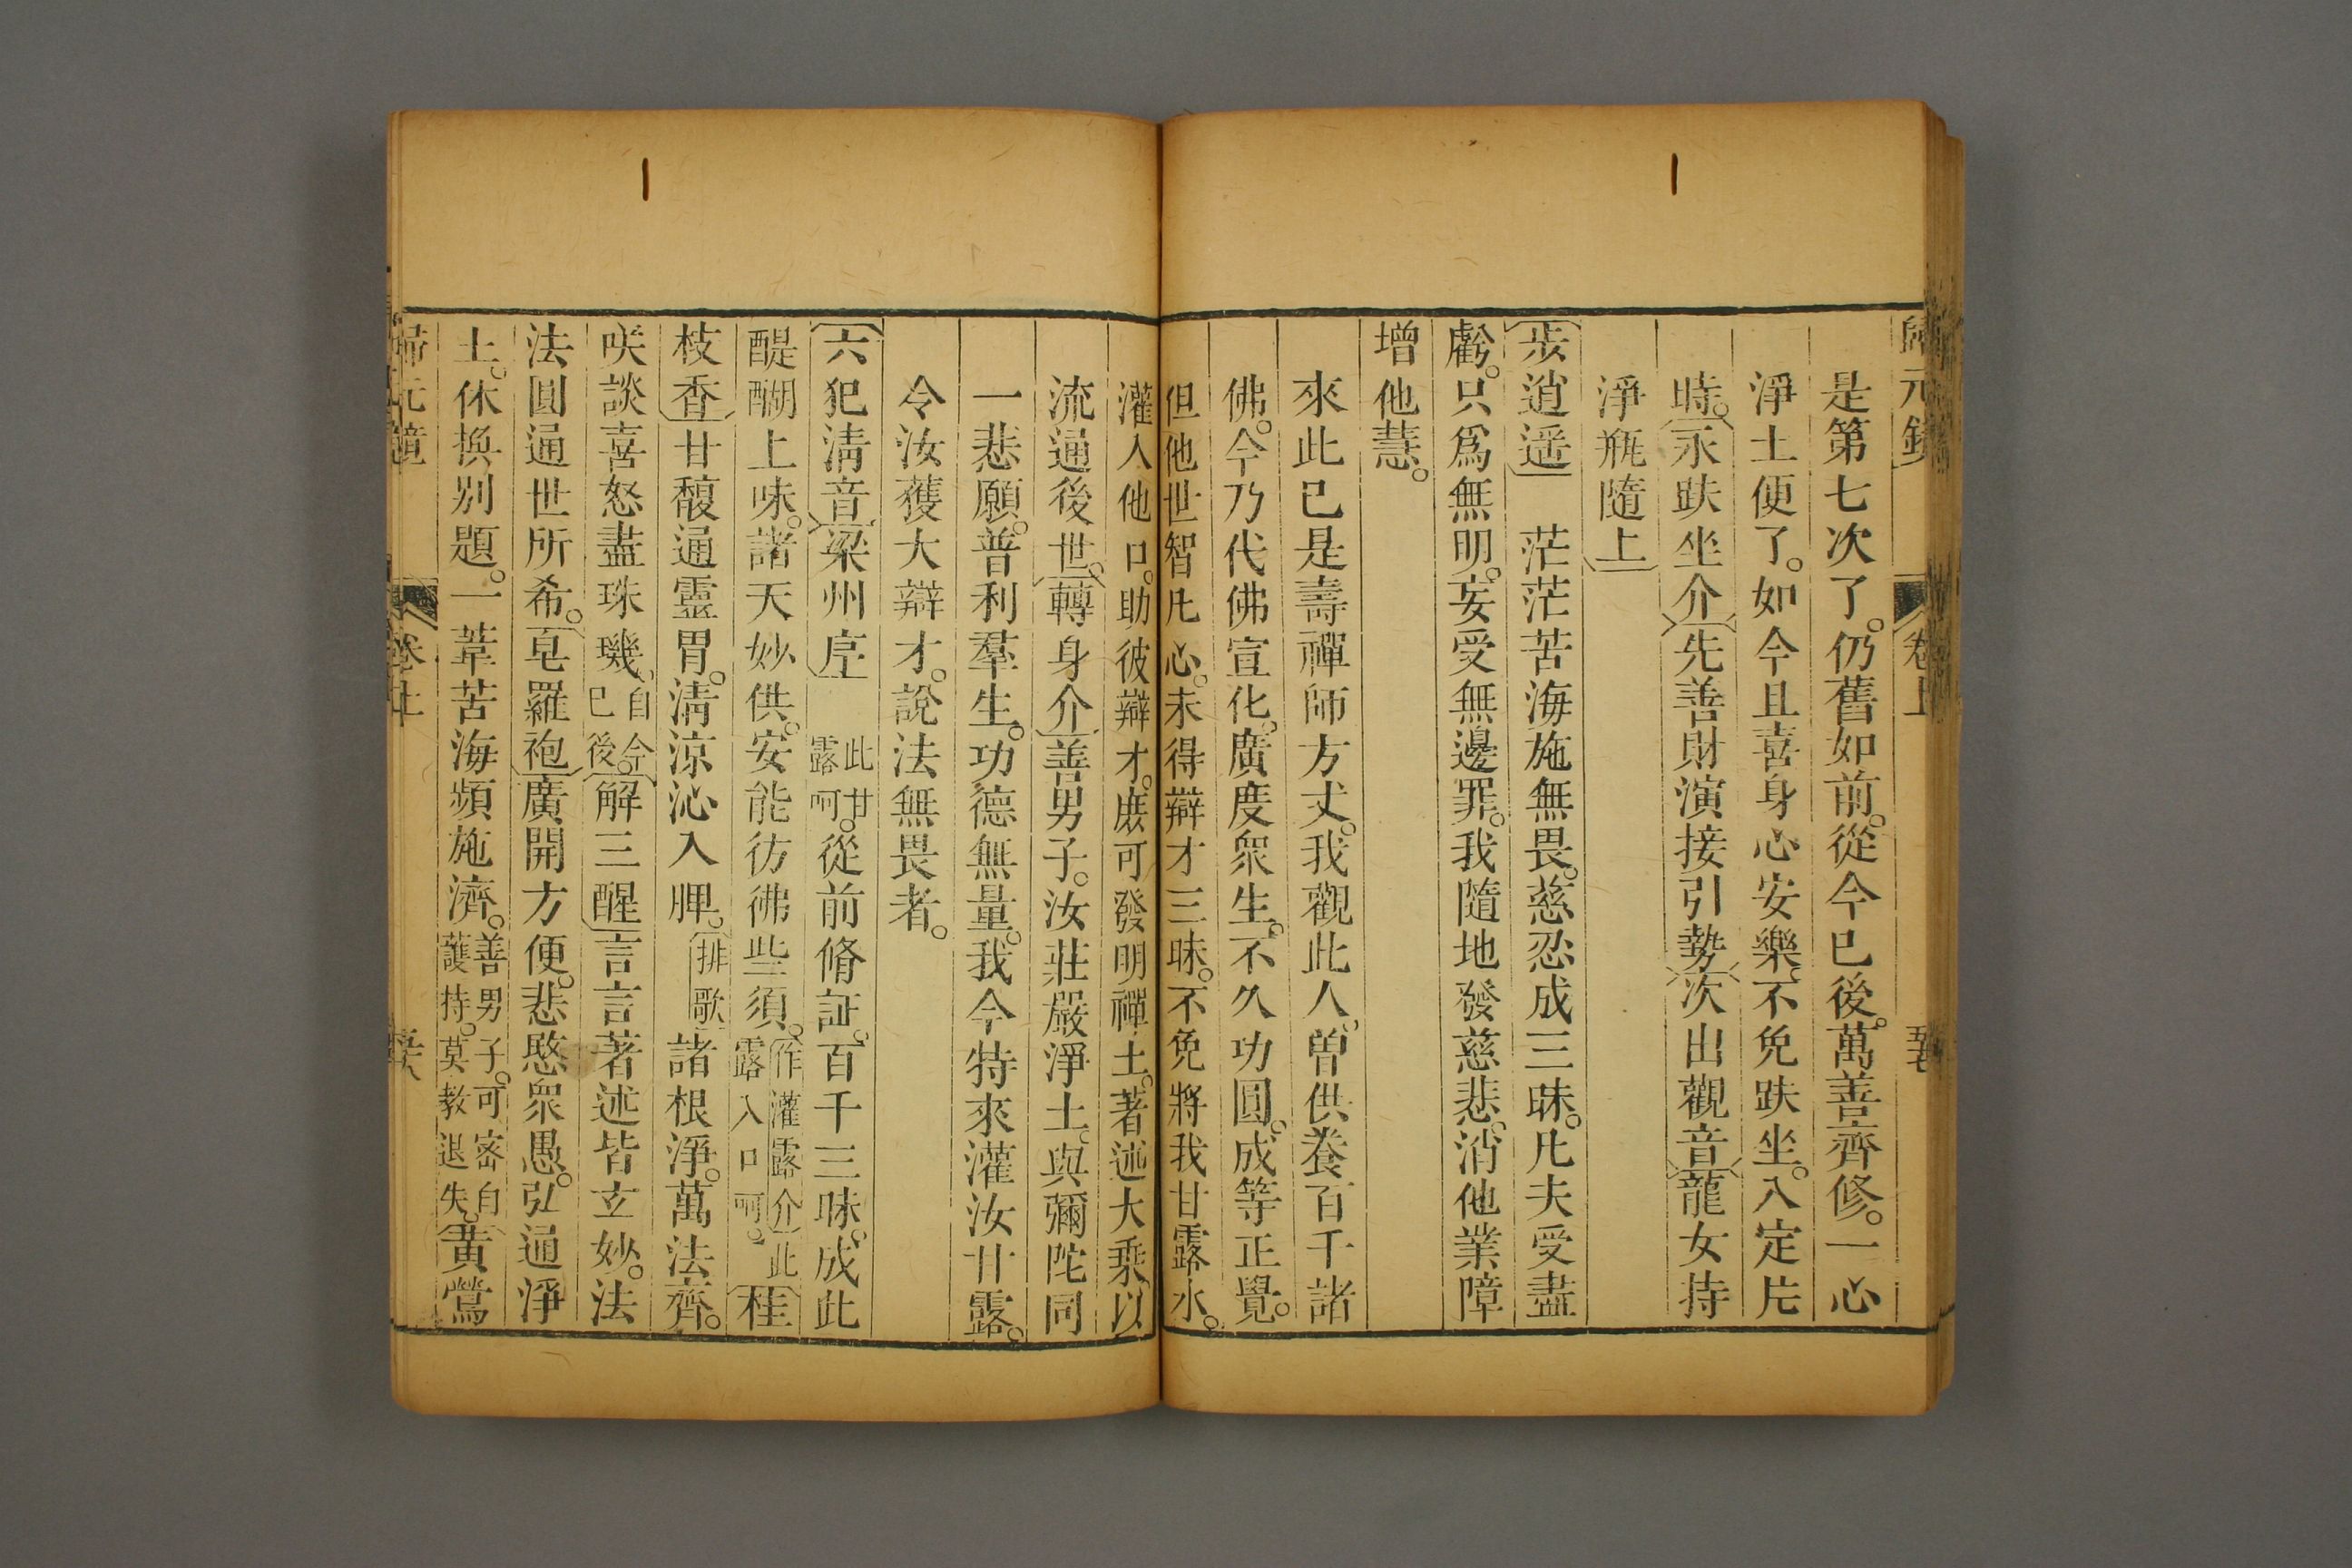 歸元鏡 卷上 五七
是第七次了。仍舊如前。從今已後。萬善齊修。一心
淨土便了。如今且喜身心安樂。不免趺坐。入定片
時。永趺坐介先善財演接引勢次出觀音龍女持
淨瓶隨上
步逍遥 茫茫苦海施無畏。慈忍成三昧。凡夫受盡
虧。只爲無明。妄受無邊罪。我隨地發慈悲。消他業障
增他慧。
來此已是壽禪師方丈。我觀此人。曽供養百千諸
佛。今乃代佛宣化。廣度衆生。不久功圓。成等正覺。
但他世智凡心。未得辯才三昧。不免將我甘露水。
灌入他口。助彼辯才。庻可發明禪土。著述大乗。以
流通後世。轉身介善男子。汝莊嚴淨土。與彌陀同
一悲願。普利羣生。功德無量。我今特來灌汝甘露。
令汝獲大辯才。說法無畏者。
六犯淸音梁州序 此甘露呵。從前脩証。百千三昧。成此
醍醐上味。諸天妙供。安能彷彿些須。作灌露介此露入口呵。桂
枝香甘馥通靈胃。淸涼沁入脾。排歌諸根淨。萬法齊。
咲談喜怒盡珠璣、自今已後。解三酲言言著述皆玄妙。法
法圓通世所希。皂羅袍廣開方便。悲愍衆愚。弘通淨
土。休換别題。一葦苦海頻施濟。善男子。可密自護持。莫教退失。黄鶯
歸元鏡 卷上 五八